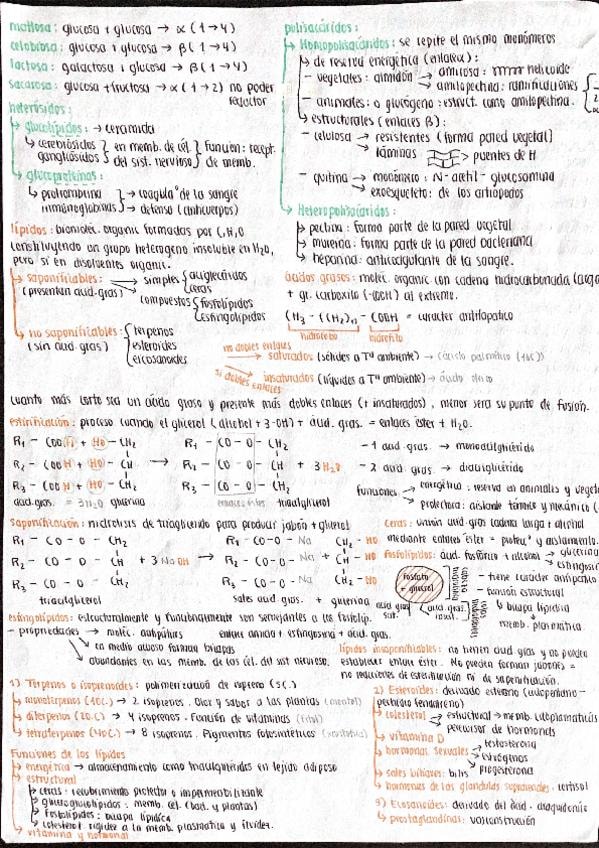 maltosa: glucosa + glucosa → α (1→4)
celobiosa: glucosa + glucosa → β (1→4)
lactosa: galactosa + glucosa → β (1→4)
sacarosa: glucosa + fructosa → α (1→2) no poder
reductor
heterósidos:
glucolípidos: → ceramida
cerebrósidos } en memb. de cél. } función: recept.
gangliósidos } del sist. nervioso } de memb.
glucoproteínas:
protrombina → coagula° de la sangre
inmunoglobinas → defensa (anticuerpos)
lípidos: biomoléc. organic formadas por C, H, O
constituyendo un grupo heterogeno insoluble en H₂O,
pero sí en disolventes organic.
saponificables: → simples { acilglicéridos
(presentan acid. gras) { ceras
→ compuestos { fosfolípidos
{ esfingolípidos
no saponificables: { terpenos
(sin acid. gras) { esteroides
{ eicosanoides
polisacáridos:
Homopolisacáridos: se repite el mismo monómeros
de reserva energética (enlace α):
- vegetales: almidón → amilosa: helicoide
→ amilopectina: ramificaciones
- animales: o glucógeno: estruct. como amilopectina.
estructurales (enlaces β):
- celulosa → resistentes (forma pared vegetal)
→ láminas → puentes de H
- quitina → monómero: N-acetil-glucosamina
→ exoesqueleto: de los artrópodos
Heteropolisacáridos:
pectina: forma parte de la pared vegetal
mureina: forma parte de la pared bacteriana
heparina: anticoagulante de la sangre.
ácidos grasos: moléc. organic con cadena hidrocarbonada (larga
+ gr. carboxilo (-COOH) al extreme.
CH₃ - (CH₂)n - COOH = carácter anfipático
hidrófobo hidrófilo
no dobles enlaces
→ saturados (sólidos a Tª ambiente) → (ácido palmítico (16C))
si dobles enlaces
→ insaturados (líquidos a Tª ambiente) → ácido oleico
cuanto más corto sea un ácido graso y presente más dobles enlaces (+ insaturados), menor será su punto de fusión.
esterificación: proceso cuando el glicerol (alcohol + 3-OH) + ácid. gras. = enlaces éster + H₂O.
R₁ - COOH + HO - CH₂ R₁ - CO - O - CH₂
R₂ - COOH + HO - CH → R₂ - CO - O - CH + 3 H₂O
R₃ - COOH + HO - CH₂ R₃ - CO - O - CH₂
acid. gras. glicerina enlaces éster triacilglicerol
- 1 acid. gras. → monoacilglicérido
- 2 acid. gras. → diacilglicérido
funciones → energética: reserva en animales y veget
→ protectora: aislante térmico y mecánico
saponificación: hidrolisis de triaglicerido para producir jabón + glicerol
R₁ - CO - O - CH₂ R₁ - CO-O - Na CH₂ - HO
R₂ - CO - O - CH + 3 NaOH → R₂ - CO-O - Na + CH - HO
R₃ - CO - O - CH₂ R₃ - CO-O - Na CH₂ - HO
triacilglicerol sales acid. gras. + glicerina
ceras: unión acid. gras cadena larga + alcohol
mediante enlaces éster = protec° y aislamiento.
fosfolípidos: ácid. fosfórico + alcohol → glicerina
fosfato + glicerol
- tiene carácter anfipático
- función estructural
↳ bicapa lipídica
memb. plasmática.
esfingolípidos: estructuralmente y funcionalmente son semejantes a los fosfolíp.
- propiedades → moléc. anfipáticas enlace amida + esfingosina + ácid. gras.
→ en medio acuoso forman bicapas
→ abundantes en las memb. de las cél. del sist. nervioso.
lípidos insaponificables: no tienen ácid. gras y no pueden
establecer enlace éster. No pueden forman jabones =
no reacciones de esterificación ni de saponificación.
1) Térpenos o isoprenoides: polimerización de isopreno (5C.)
monoterpenos (10C.) → 2 isoprenos. Olor y sabor a las plantas (mentol)
diterpenos (20C.) → 4 isoprenos. Función de vitaminas (fitol)
tetraterpenos (40C.) → 8 isoprenos. Pigmentos fotosintéticos
Funciones de los lípidos
energética → almacenamiento como triacilglicéridos en tejido adiposo
estructural
ceras: recubrimiento protector o impermeabilizante
glucolípidos: memb. cél. (bact. y plantas)
fosfolípidos: bicapa lipídica
colesterol: rigidez a la memb. plasmática y fluidez.
vitamínica y hormonal
2) Esteroides: derivado esterano (ciclopentano-
perhidro fenantreno)
colesterol → estructural → memb. citoplasmáticas
→ percusor de hormonas
vitamina D
hormonas sexuales → testosterona
→ estrógenos
→ progesterona
sales biliares: bilis
hormonas de las glándulas suprarrenales: cortisol
3) Eicosanoides: derivado del ácid. araquidónico
prostaglandinas: vasoconstricción